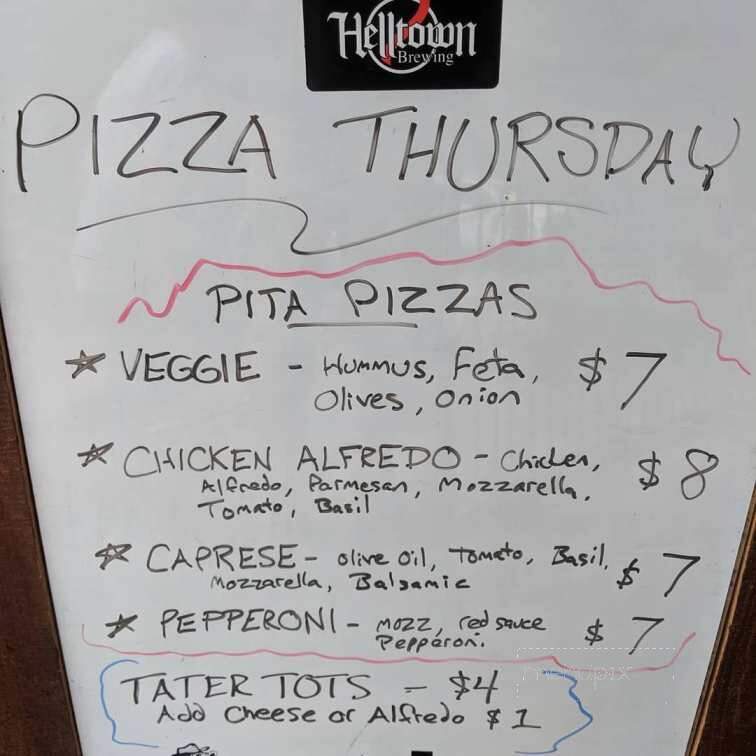 Helltown
Brewing
PIZZA THURSDAY
PITA PIZZAS
☆ VEGGIE - Hummus, Feta, $7
Olives, Onion
☆ CHICKEN ALFREDO - Chicken, $8
Alfredo, Parmesan, Mozzarella,
Tomato, Basil
☆ CAPRESE - olive oil, Tomato, Basil, $7
Mozzarella, Balsamic
☆ PEPPERONI - mozz, red sauce $7
Pepperoni.
TATER TOTS - $4
Add Cheese or Alfredo $1